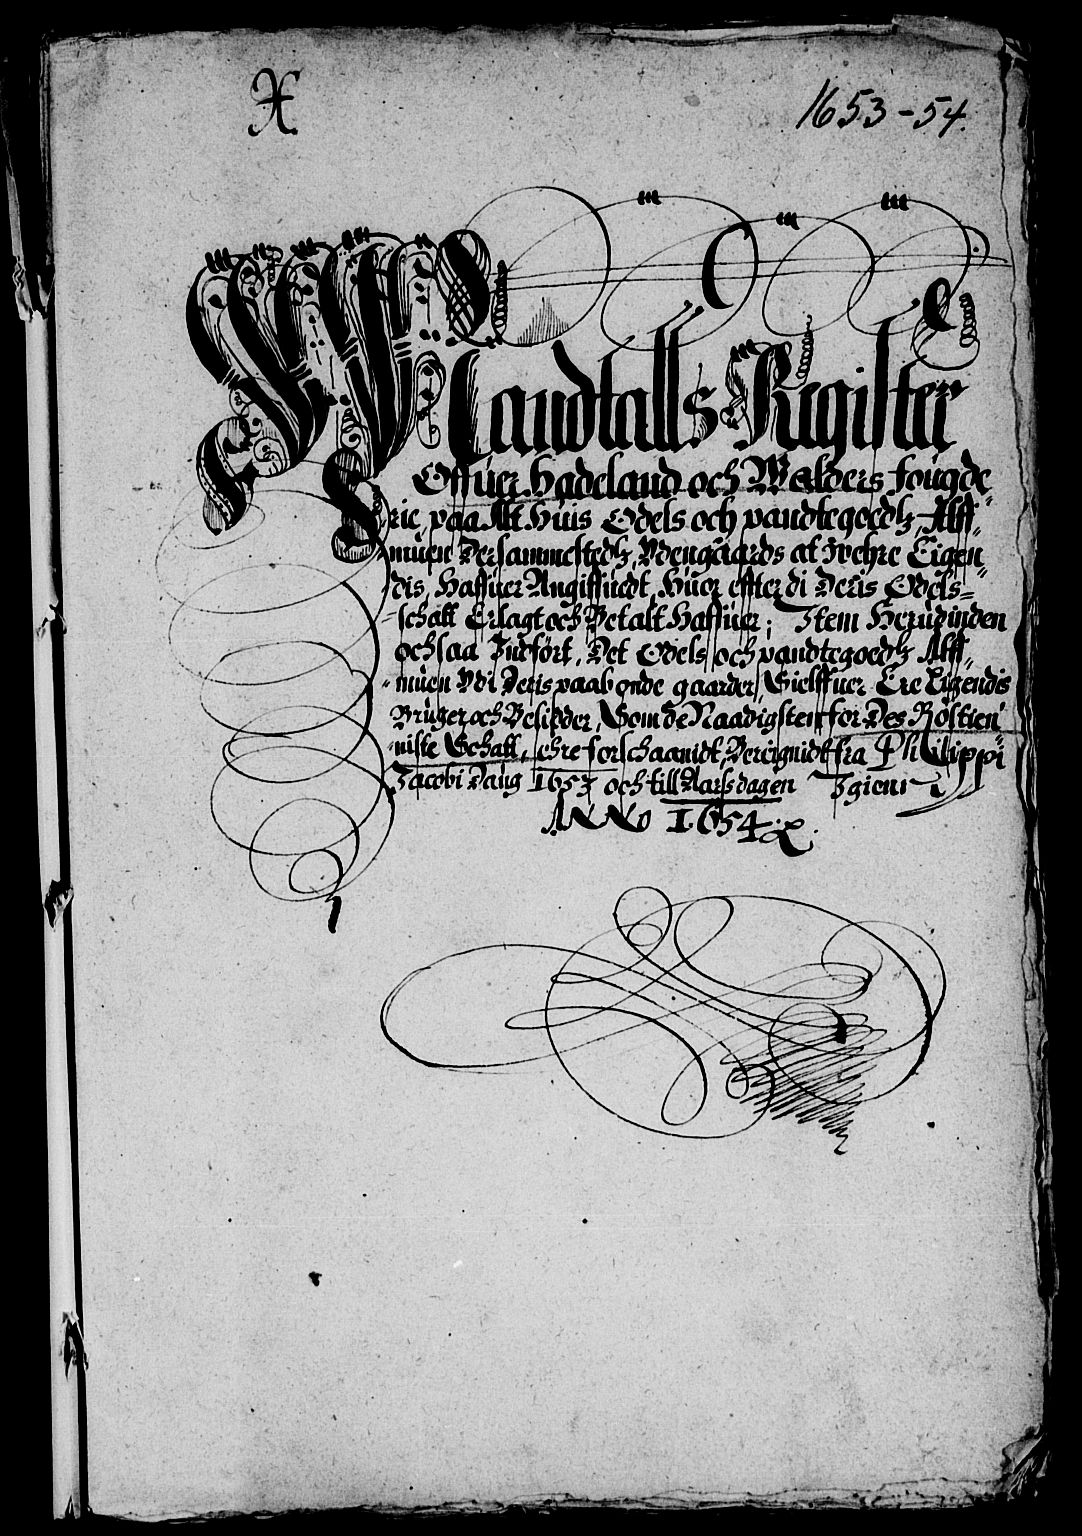 1653-54.
Mandtalls Register
Offuer Hadeland och Walders fougde=
rie, paa Alt Huis Odels och pandtegoedtz Alff=
muen Dersammestedtz, Udengaards at were Eigen=
dis, Haffuer Angiffuedt, Huor effter di Deris Odels=
schatt Erlagt och Betalt Haffuer; Item Herudinden
ochsaa Indført, Det Odels och pandtegoedtz Alff=
muen Udi Deris paaboende gaarder, Sielffuer Ere Eigendis
Bruger och Besidder, Som de Naadigsten for Des Rostien=
niste Schatt, ehre forschaanidt, Beregnidt fra Philippi
Jacobi Daug 1653 och till Aarsdagen Igien
Anno 1654